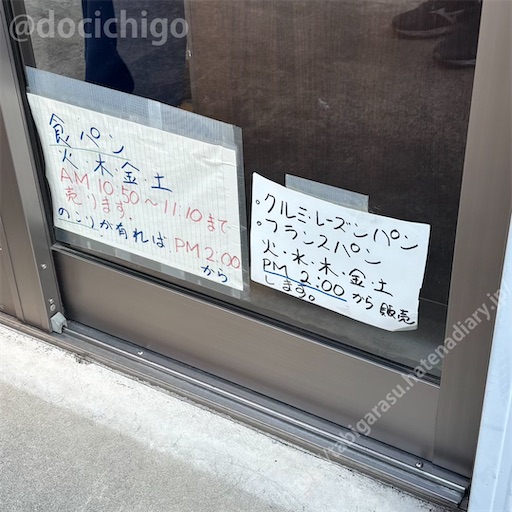 @docichigo
食パン
火・木・金・土
AM 10:50〜11:10まで
売ります。
のこりが有れば PM 2:00
から
・クルミ・レーズンパン
・フランスパン
火・水・木・金・土
PM 2:00から販売
します。
/tabigarasu.hatenadiary.jp/